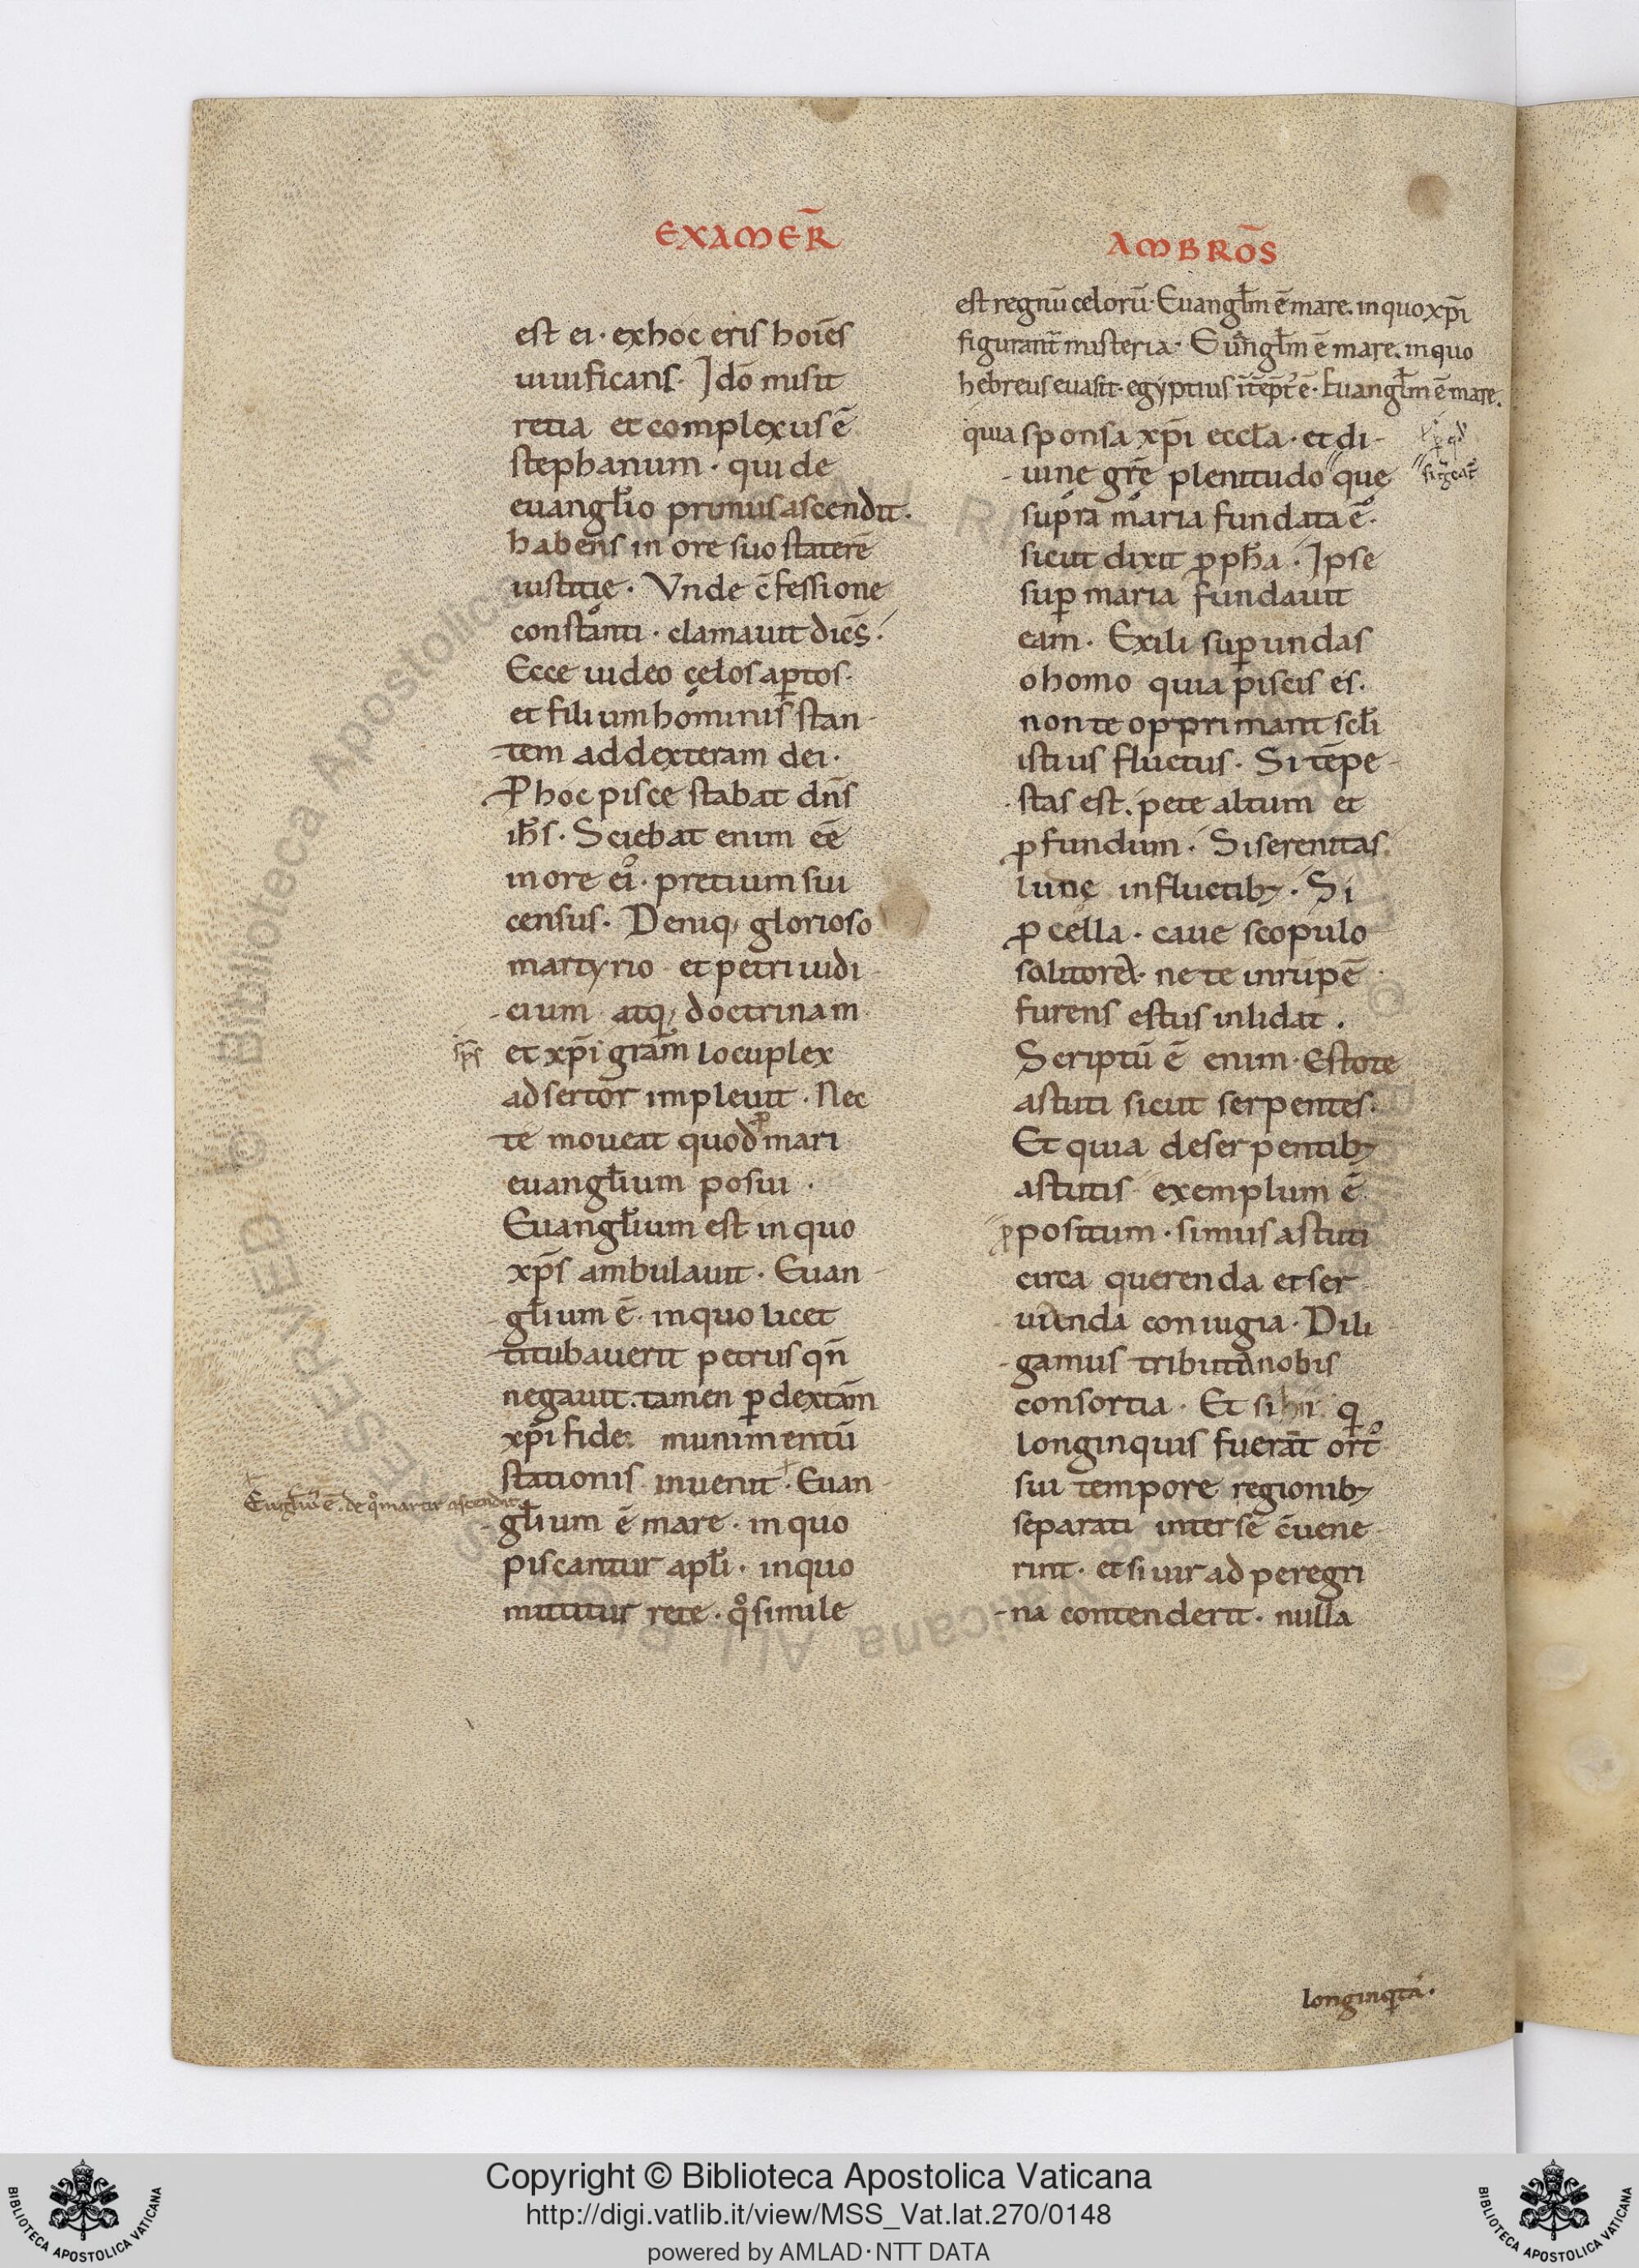 EXAMER̄
est ei · exhoc eris hoīes
uiuificans · Idō misit
retia et complexus ē
stephanum · qui de
euangl̄io primus ascendit ·
habens in ore suo staterē
iustitię · Vnde c̄fessione
constanti · clamauit dicēs ·
Ecce uideo cęlos aꝑtos ·
et filium hominis stan
tem addexteram dei ·
P hoc pisce stabat dn̄s
ih̄s · Sciebat enim eē
inore eiꝰ · pretium sui
census · Deniq; glorioso
martyrio et petri iudi
cium atq; doctrinam
sp̄s
et xp̄i grām locuplex
adsertor impleuit · Nec
te moueat quod ꝓ mari
euangl̄ium posui ·
Euangl̄ium est inquo
xp̄s ambulauit · Euan
gl̄ium ē · inquo licet
titubauerit petrus qn̄
negauit · tamen ꝑ dextām
xp̄i fidei munimentū
stationis inuenit · Euan
Euāgl̄iū ē · de qͦ martir ascendit ·
gl̄ium ē mare · inquo
piscantur apl̄i · inquo
mittitur rete · qͦ simile
AMBRŌS
est regnū celorū · Euangl̄m ē mare · inquo xp̄i
figurant̄ misteria · Euāngl̄m ē mare · inquo
hebreus euasit · egyptius īt̄ēpt̓ ē · Euangl̄m ē mare ·
quia sponsa xp̄i eccl̄a · et di
uinę gr̄ę plenitudo que
supra maria fundata ē ·
sicut dixit ꝓph̄a · Ipse
suꝑ maria fundauit
eam · Exili suꝑ undas
o homo quia piscis es ·
non te opprimant scl̄i
istius fluctus · Si tēpe
stas est · pete altum et
ꝓfundum · Si serenitas
lude influctib; · Si
ꝓcella · caue scopulo
sͣ litore · ne te inrupē
furens estus inlidat ·
Scriptū ē enim · Estote
astuti sicut serpentes ·
Et quia deserpentib;
astutis exemplum ē
ꝓpositum · simus astuti
circa querenda et ser
uanda coniugia · Dili
gamus tributa nobis
consortia · Et si hii q
longinquis fuerāt ortꝰ
sui tempore regionib;
separati inter sē c̄uene
rint · et si uir ad peregri
na contenderit · nulla
longinq̓ta ·
Copyright © Biblioteca Apostolica Vaticana
http://digi.vatlib.it/view/MSS_Vat.lat.270/0148
powered by AMLAD · NTT DATA
BIBLIOTECA APOSTOLICA VATICANA
BIBLIOTECA APOSTOLICA VATICANA